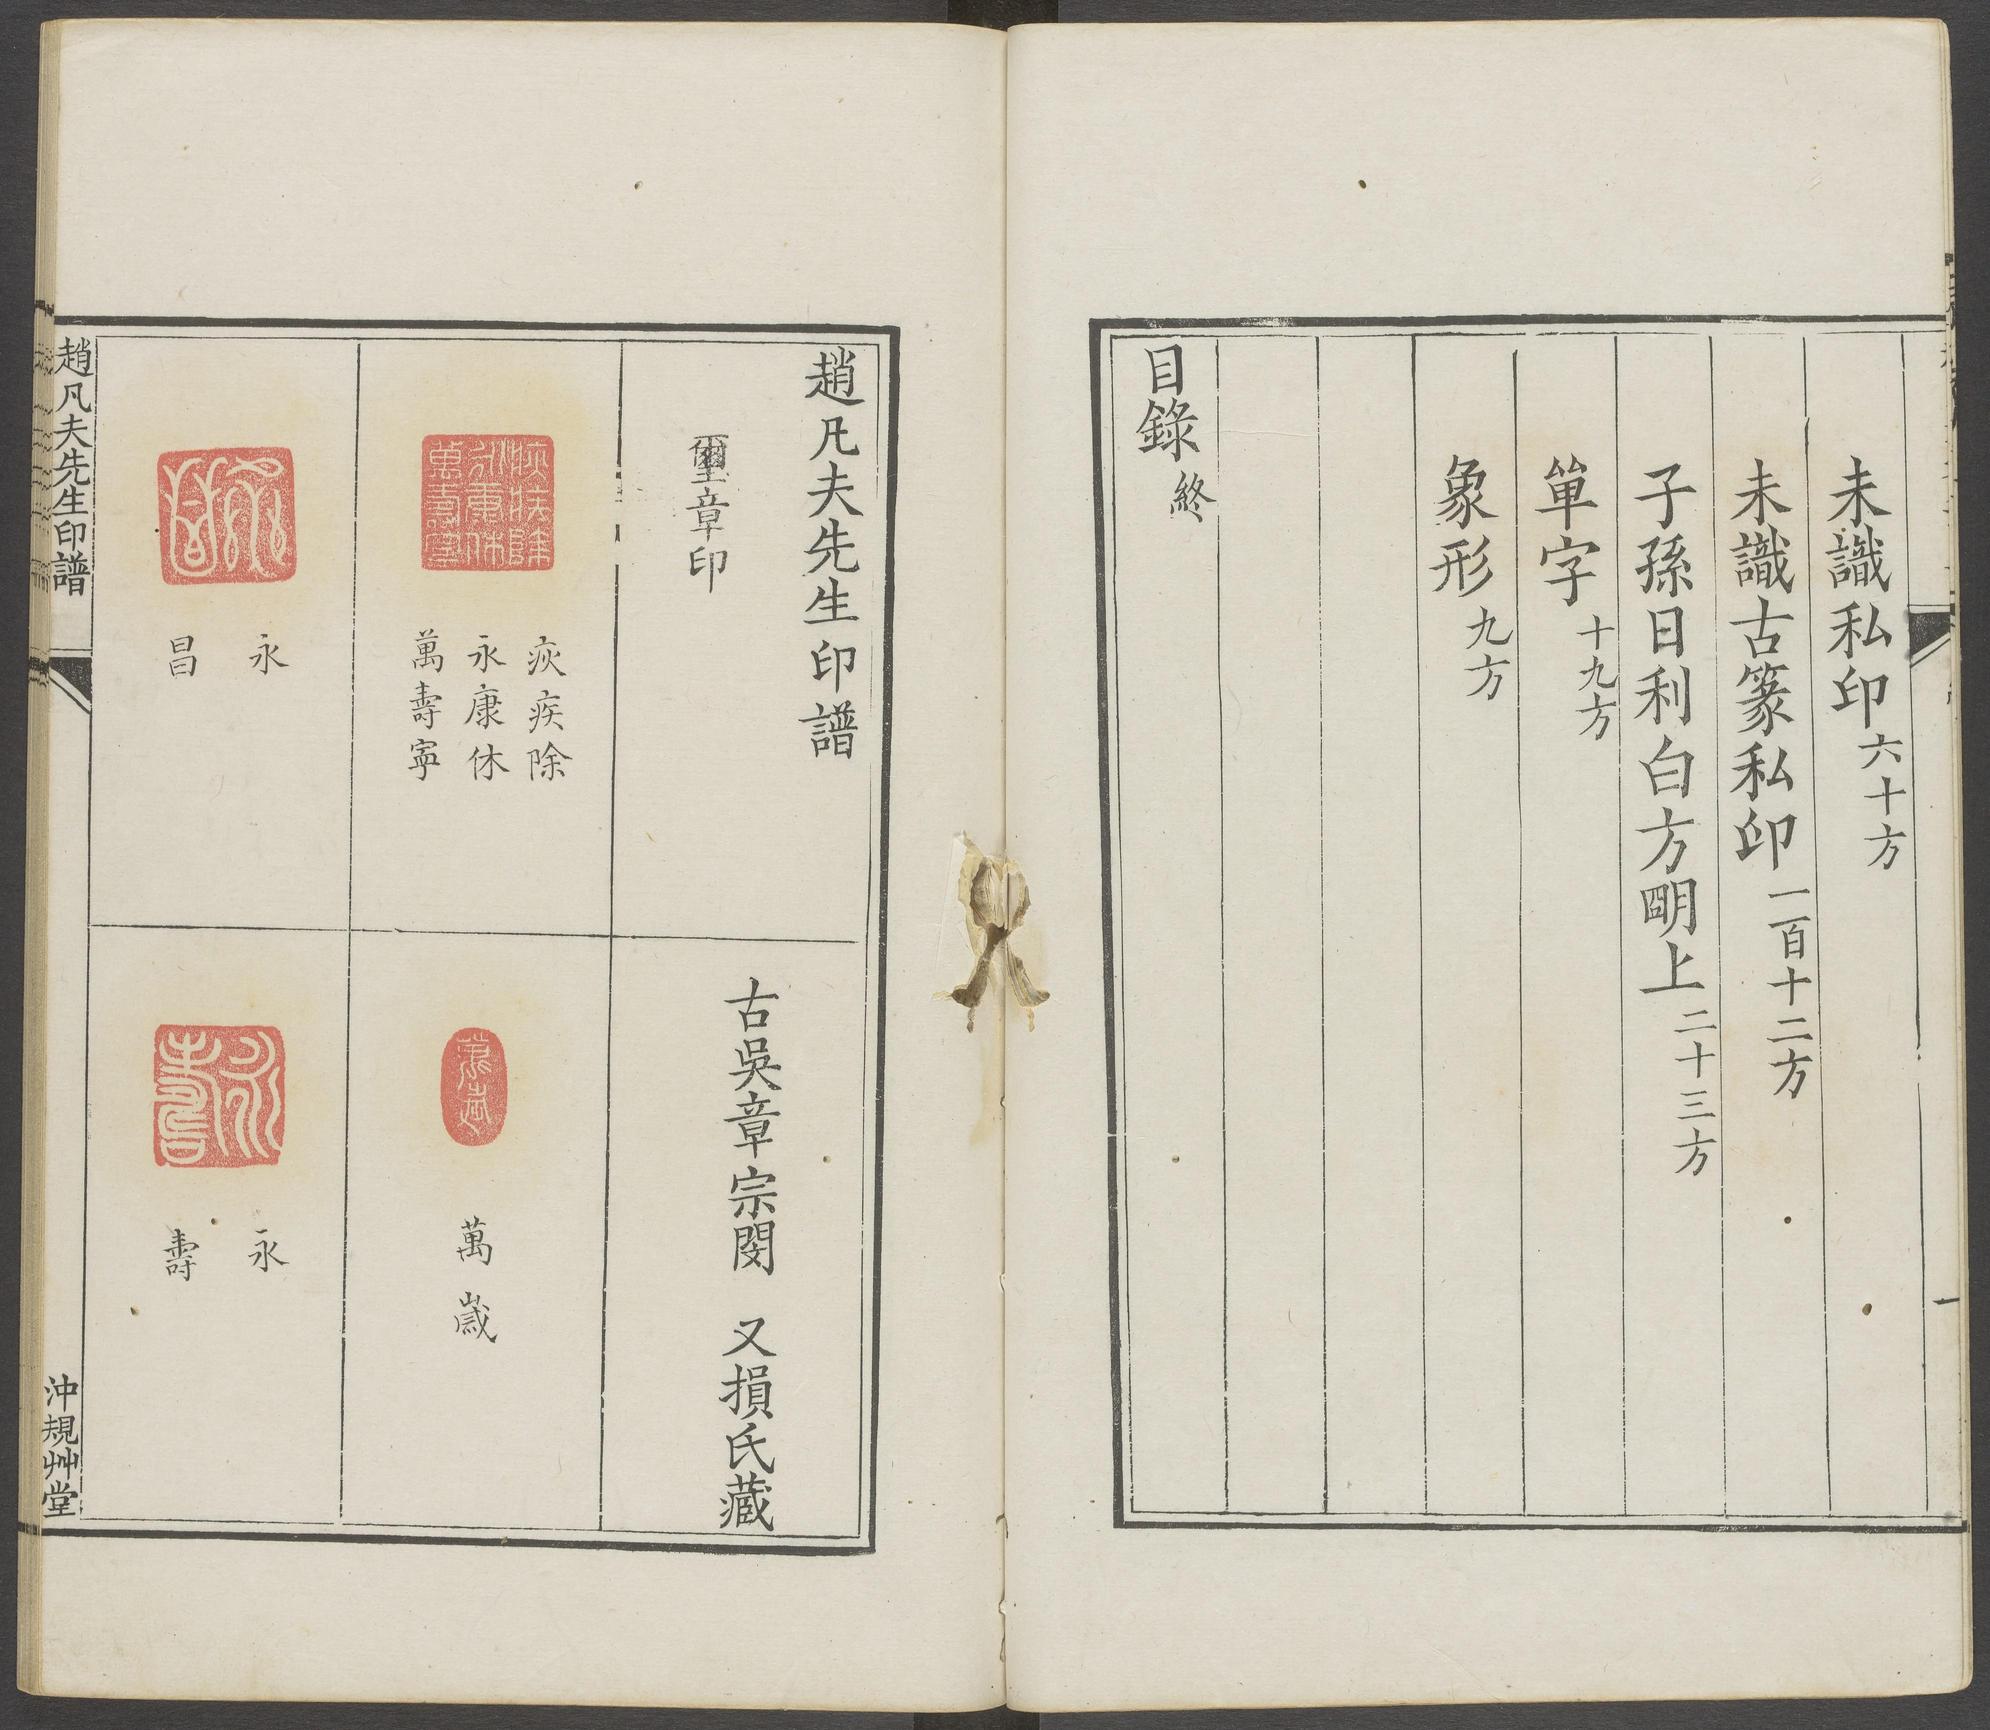 未識私印六十方
未識古篆私印一百十二方
子孫日利白方朙上二十三方
單字十九方
象形九方
目錄終
一
趙凡夫先生印譜
璽章印
古吳章宗閔 又損氏藏
疢疾除
永康休
萬壽寧
萬歲
永
昌
永
壽
趙凡夫先生印譜
沖規艸堂